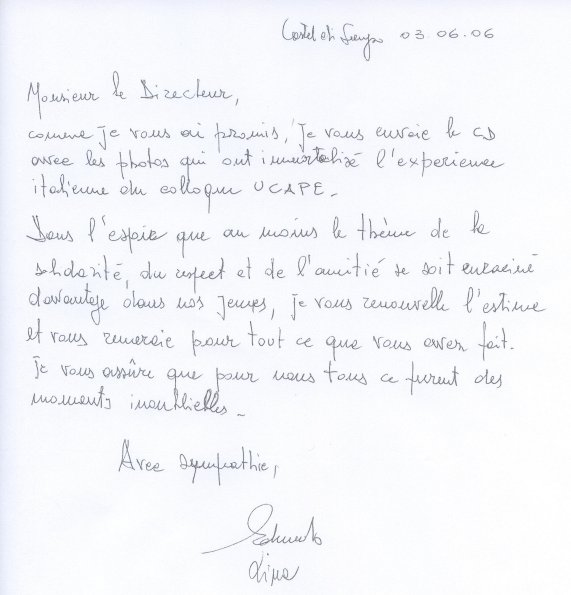 Castel di 03.06.06
Monsieur le Directeur,
comme je vous ai promis, je vous envoie le CD
avec les photos qui ont immortalisé l'experience
italienne du colloque UCAPE.
Dans l'espoir que au moins le thème de la
solidarité, du respect et de l'amitié se soit enraciné
davantage dans nos jeunes, je vous renouvelle l'estime
et vous remercie pour tout ce que vous avez fait.
Je vous assûre que pour nous tous ce furent des
moments inoubliables.
Avec sympathie,